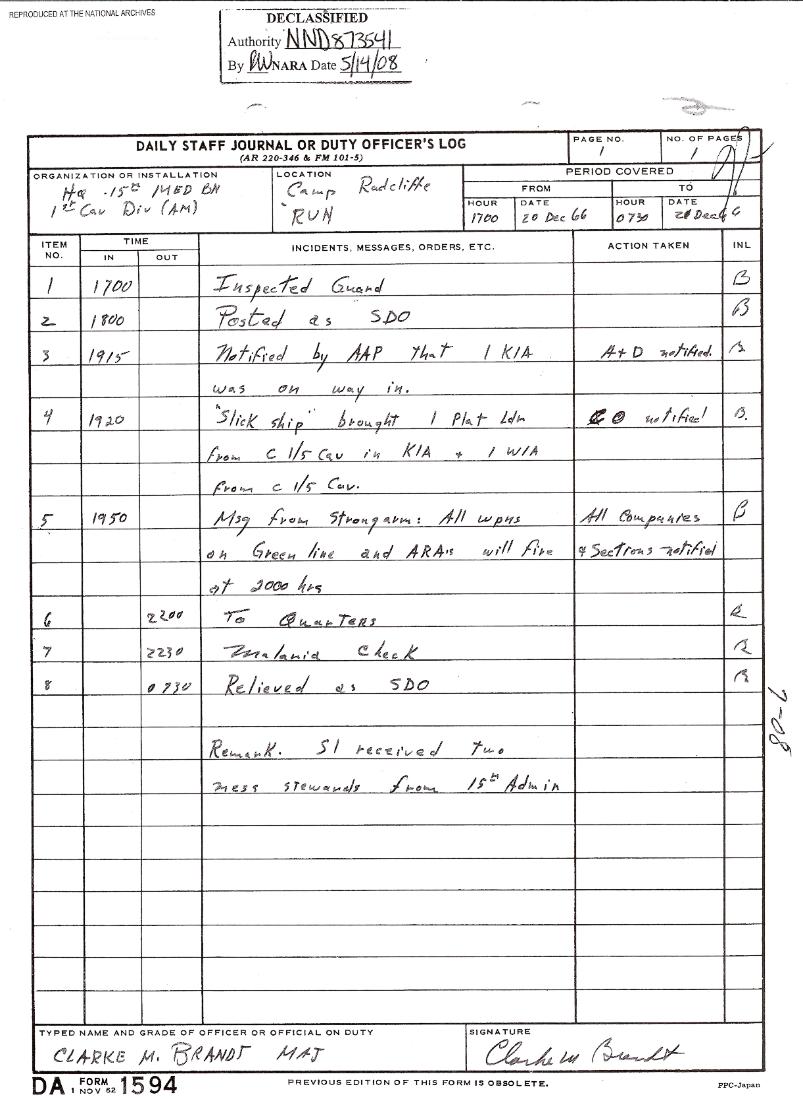 REPRODUCED AT THE NATIONAL ARCHIVES
DECLASSIFIED
Authority NND873541
By NARA Date 5/14/08
DAILY STAFF JOURNAL OR DUTY OFFICER'S LOG
(AR 220-346 & FM 101-5)
PAGE NO.
1
NO. OF PAGES
1
ORGANIZATION OR INSTALLATION
Hq 15th MED BN
1st Cav Div (AM)
LOCATION
Camp Radcliffe
RVN
PERIOD COVERED
FROM
TO
HOUR
1700
DATE
20 Dec 66
HOUR
0730
DATE
21 Dec 66
ITEM NO.
TIME
IN
OUT
INCIDENTS, MESSAGES, ORDERS, ETC.
ACTION TAKEN
INL
1 1700 Inspected Guard B
2 1800 Posted as SDO B
3 1915 Notified by AAP that 1 KIA A+D notified. B
was on way in.
4 1920 "Slick ship" brought 1 Plat Ldr CO notified B.
from C 1/5 Cav in KIA + 1 WIA
from C 1/5 Cav.
5 1950 Msg from Strongarm: All wpns All Companies B
on Green line and ARA's will fire & Sections notified
at 2000 hrs
6 2200 To Quarters B
7 2230 Malaria Check B
8 0730 Relieved as SDO B
Remark. S1 received two
mess stewards from 15th Admin
7-08
TYPED NAME AND GRADE OF OFFICER OR OFFICIAL ON DUTY
CLARKE M. BRANDT MAJ
SIGNATURE
Clarke M Brandt
DA FORM 1 NOV 62 1594
PREVIOUS EDITION OF THIS FORM IS OBSOLETE.
PPC-Japan